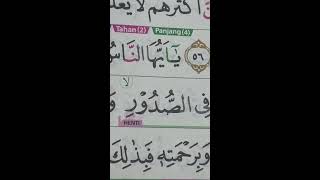 أكثرهم لا يعلـ
Tahan (2) Panjang (4)
٥٦ يٰٓاَيُّهَا النَّاسُ
لا
فِى الصُّدُوْرِ
HENTI
وَبِرَحْمَتِهٖ فَبِذٰلِكَ